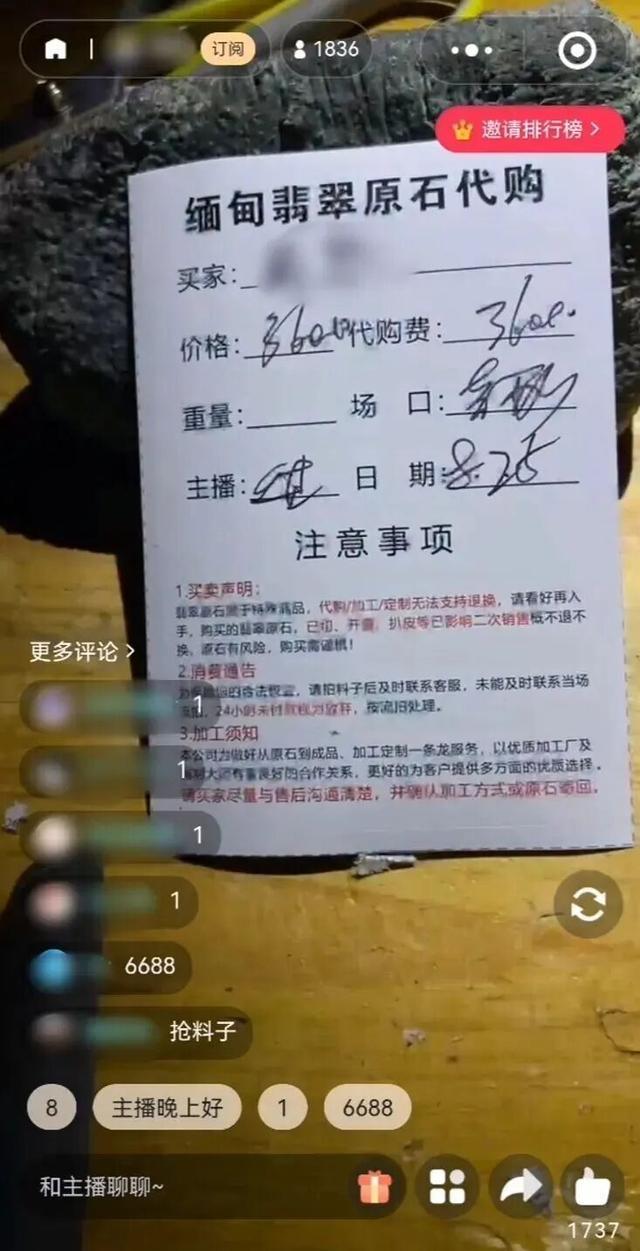 订阅
1836
邀请排行榜 >
缅甸翡翠原石代购
买家:
价格: 代购费: 3600.
重量: 场 口:
主播: 日 期: 8.25
注意事项
1.买卖声明:
翡翠原石属于特殊商品, 代购/加工/定制无法支持退换, 请看好再入
手, 购买的翡翠原石, 已切、开窗、扒皮等已影响二次销售概不退不
换, 原石有风险, 购买需谨慎!
2.消费通告
请拍料子后及时联系客服, 未能及时联系当场
24小时未付款视为放弃, 按流拍处理.
3.加工须知
本公司为做好从原石到成品、加工定制一条龙服务, 以优质加工厂及
大师有着良好的合作关系, 更好的为客户提供多方面的优质选择.
请买家尽量与售后沟通清楚, 并确认加工方式或原石寄回.
更多评论 >
1
1
1
1
6688
抢料子
8 主播晚上好 1 6688
和主播聊聊~
1737